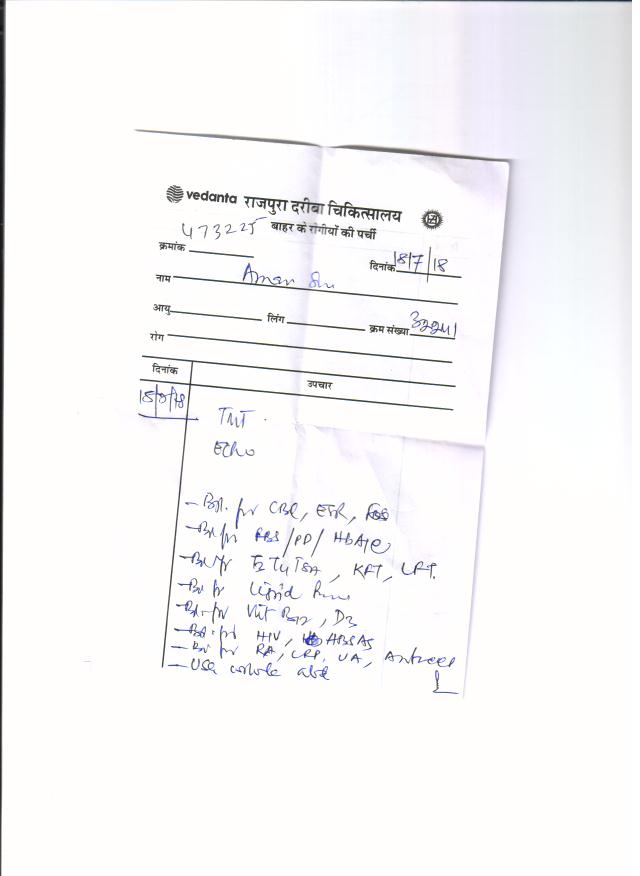 vedanta राजपुरा दरीबा चिकित्सालय
473225 बाहर के रोगीयों की पर्ची
क्रमांक
दिनांक 18/7/18
नाम Aman
आयु लिंग क्रम संख्या
रोग
दिनांक उपचार
TMT
ECHO
- Bl. for CBC, ESR,
- Bl. for RBS/PP/HbA1c
- Bl. for T3 T4 TSH, KFT, LFT.
- Bl. for Lipid
- Bl. for Vit B12, D3
- Bl. for HIV, HBSAG
- Bl. for RA, CRP, UA,
- USG whole abd